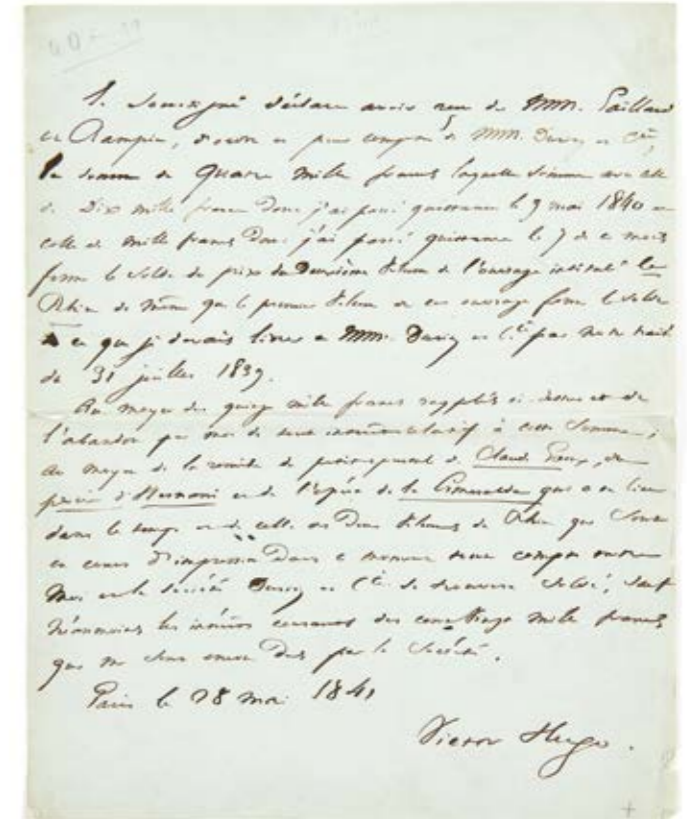 Je soussigné déclare avoir reçu de MM. Paillard
et Rampin, d'ordre et pour compte de MM. Duriez et Cie,
la somme de Quatre mille francs laquelle somme avec celle
de Dix mille francs dont j'ai passé quittance le 9 mai 1840 et
celle de mille francs dont j'ai passé quittance le 7 de ce mois
forme le solde du prix du Deuxième volume de l'ouvrage intitulé le
Rhin de même que le premier volume de cet ouvrage forme le solde
de ce que je devais livrer à MM. Duriez et Cie par notre traité
du 31 juillet 1839.
Au moyen des quinze mille francs rappelés ci-dessus et de
l'abandon par moi de tout intérêt relatif à cette somme;
au moyen de la remise de de Claude Gueux, du
procès d'Hernani et de l'opéra de la Esmeralda qui a eu lieu
dans le temps et de celle des Deux volumes du Rhin qui sont
en cours d'impression dans ce moment tout compte entre
moi et la Société Duriez et Cie se trouvera soldé, sauf
néanmoins les intérêts courants des mille francs
qui me sont encore dus par la Société.
Paris le 28 mai 1841
Victor Hugo.